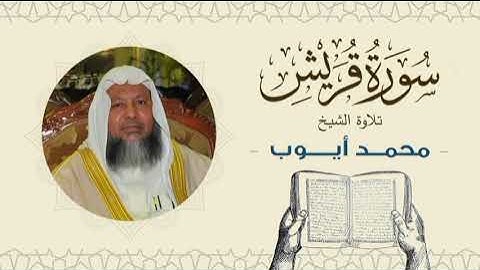 سُورَةُ قُرَيْشٍ
تلاوة الشيخ
محمد أيوب